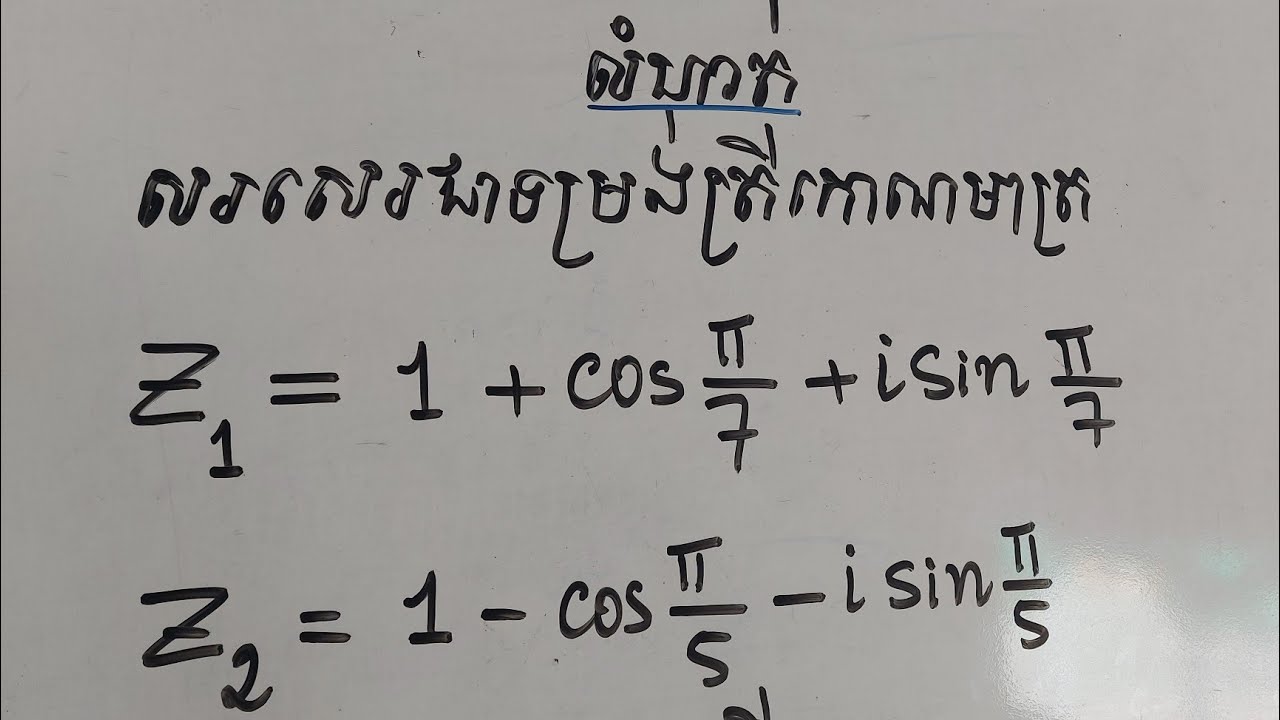 លំហាត់
សរសេរជាទម្រង់ត្រីកោណមាត្រ
Z₁ = 1 + cos π/7 + i sin π/7
Z₂ = 1 - cos π/5 - i sin π/5